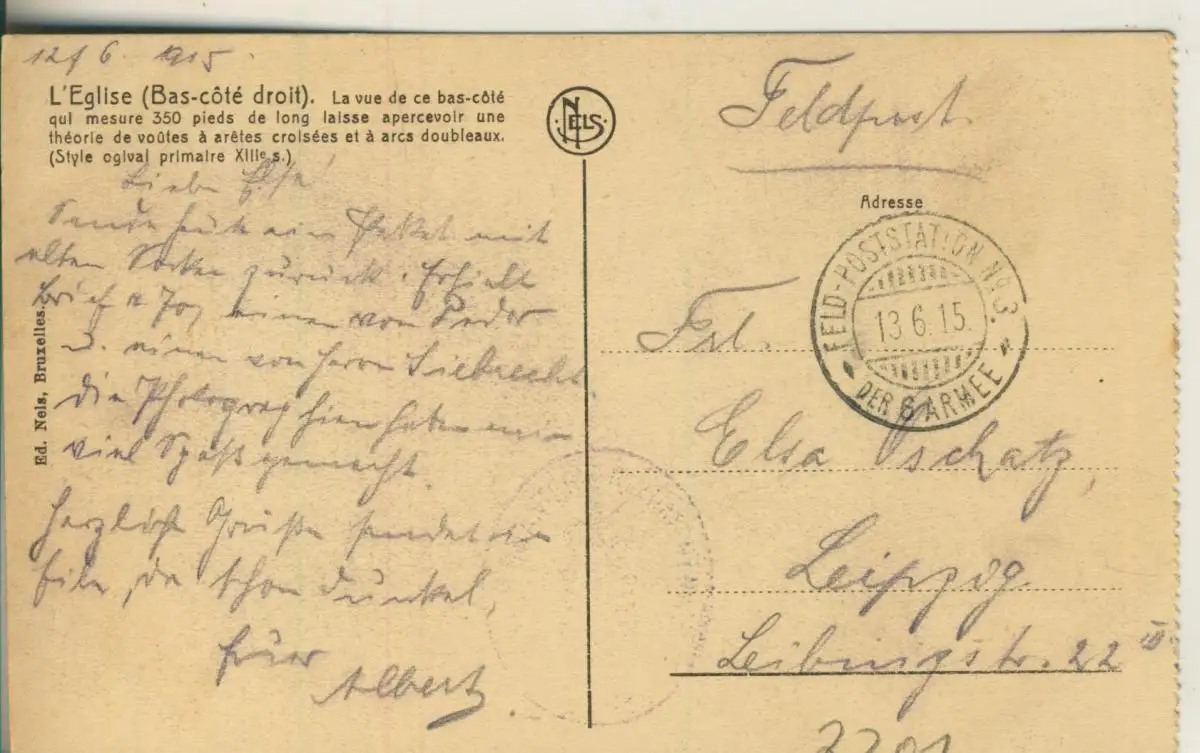 12/6. 1915.
L'Eglise (Bas-côté droit). La vue de ce bas-côté
qui mesure 350 pieds de long laisse apercevoir une
théorie de voûtes à arêtes croisées et à arcs doubleaux.
(Style ogival primaire XIIIe s.)
Liebe Else!
Sende heute ein Paket mit
alten Socken zurück. Erhielt
Brief einen von
u. einen von Herrn Siebrecht
die Photographien haben mir
viel Spaß gemacht.
Herzliche Grüße sendet in
Eile, da schon dunkel,
Euer
Albert
Ed. Nels, Bruxelles.
NELS
Feldpost
Adresse
FELD-POSTSTATION No. 3.
13.6.15.
DER 6 ARMEE
Frl.
Elsa Oschatz,
Leipzig
Leibnizstr. 22 III
3201